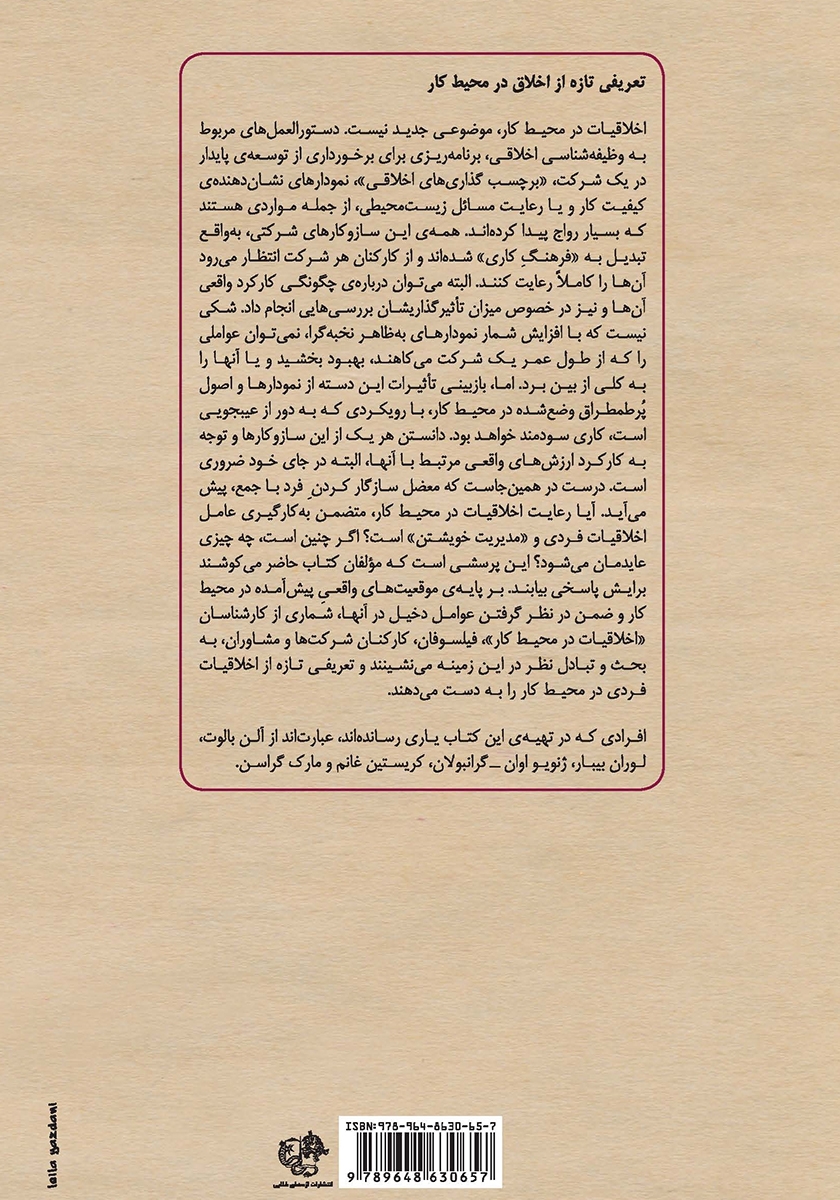 تعریفی تازه از اخلاق در محیط کار
اخلاقیات در محیط کار، موضوعی جدید نیست. دستورالعمل‌های مربوط
به وظیفه‌شناسی اخلاقی، برنامه‌ریزی برای برخورداری از توسعه‌ی پایدار
در یک شرکت، «برچسب گذاری‌های اخلاقی»، نمودارهای نشان‌دهنده‌ی
کیفیت کار و یا رعایت مسائل زیست‌محیطی، از جمله مواردی هستند
که بسیار رواج پیدا کرده‌اند. همه‌ی این سازوکارهای شرکتی، به‌واقع
تبدیل به «فرهنگِ کاری» شده‌اند و از کارکنان هر شرکت انتظار می‌رود
آن‌ها را کاملاً رعایت کنند. البته می‌توان درباره‌ی چگونگی کارکرد واقعی
آن‌ها و نیز در خصوص میزان تأثیرگذاریشان بررسی‌هایی انجام داد. شکی
نیست که با افزایش شمار نمودارهای به‌ظاهر نخبه‌گرا، نمی‌توان عواملی
را که از طول عمر یک شرکت می‌کاهند، بهبود بخشید و یا آنها را
به کلی از بین برد. اما، بازبینی تأثیرات این دسته از نمودارها و اصول
پُرطمطراق وضع‌شده در محیط کار، با رویکردی که به دور از عیبجویی
است، کاری سودمند خواهد بود. دانستن هر یک از این سازوکارها و توجه
به کارکرد ارزش‌های واقعی مرتبط با آنها، البته در جای خود ضروری
است. درست در همین‌جاست که معضل سازگار کردنِ فرد با جمع، پیش
می‌آید. آیا رعایت اخلاقیات در محیط کار، متضمن به‌کارگیری عامل
اخلاقیات فردی و «مدیریت خویشتن» است؟ اگر چنین است، چه چیزی
عایدمان می‌شود؟ این پرسشی است که مؤلفان کتاب حاضر می‌کوشند
برایش پاسخی بیابند. بر پایه‌ی موقعیت‌های واقعیِ پیش‌آمده در محیط
کار و ضمن در نظر گرفتن عوامل دخیل در آنها، شماری از کارشناسان
«اخلاقیات در محیط کار»، فیلسوفان، کارکنان شرکت‌ها و مشاوران، به
بحث و تبادل نظر در این زمینه می‌نشینند و تعریفی تازه از اخلاقیات
فردی در محیط کار را به دست می‌دهند.
افرادی که در تهیه‌ی این کتاب یاری رسانده‌اند، عبارت‌اند از آلن بالوت،
لوران بیبار، ژنویو اوان ـ گرانبولان، کریستین غانم و مارک گراسن.
leila yazdani
ISBN: 978-964-8630-65-7
9 789648 630657